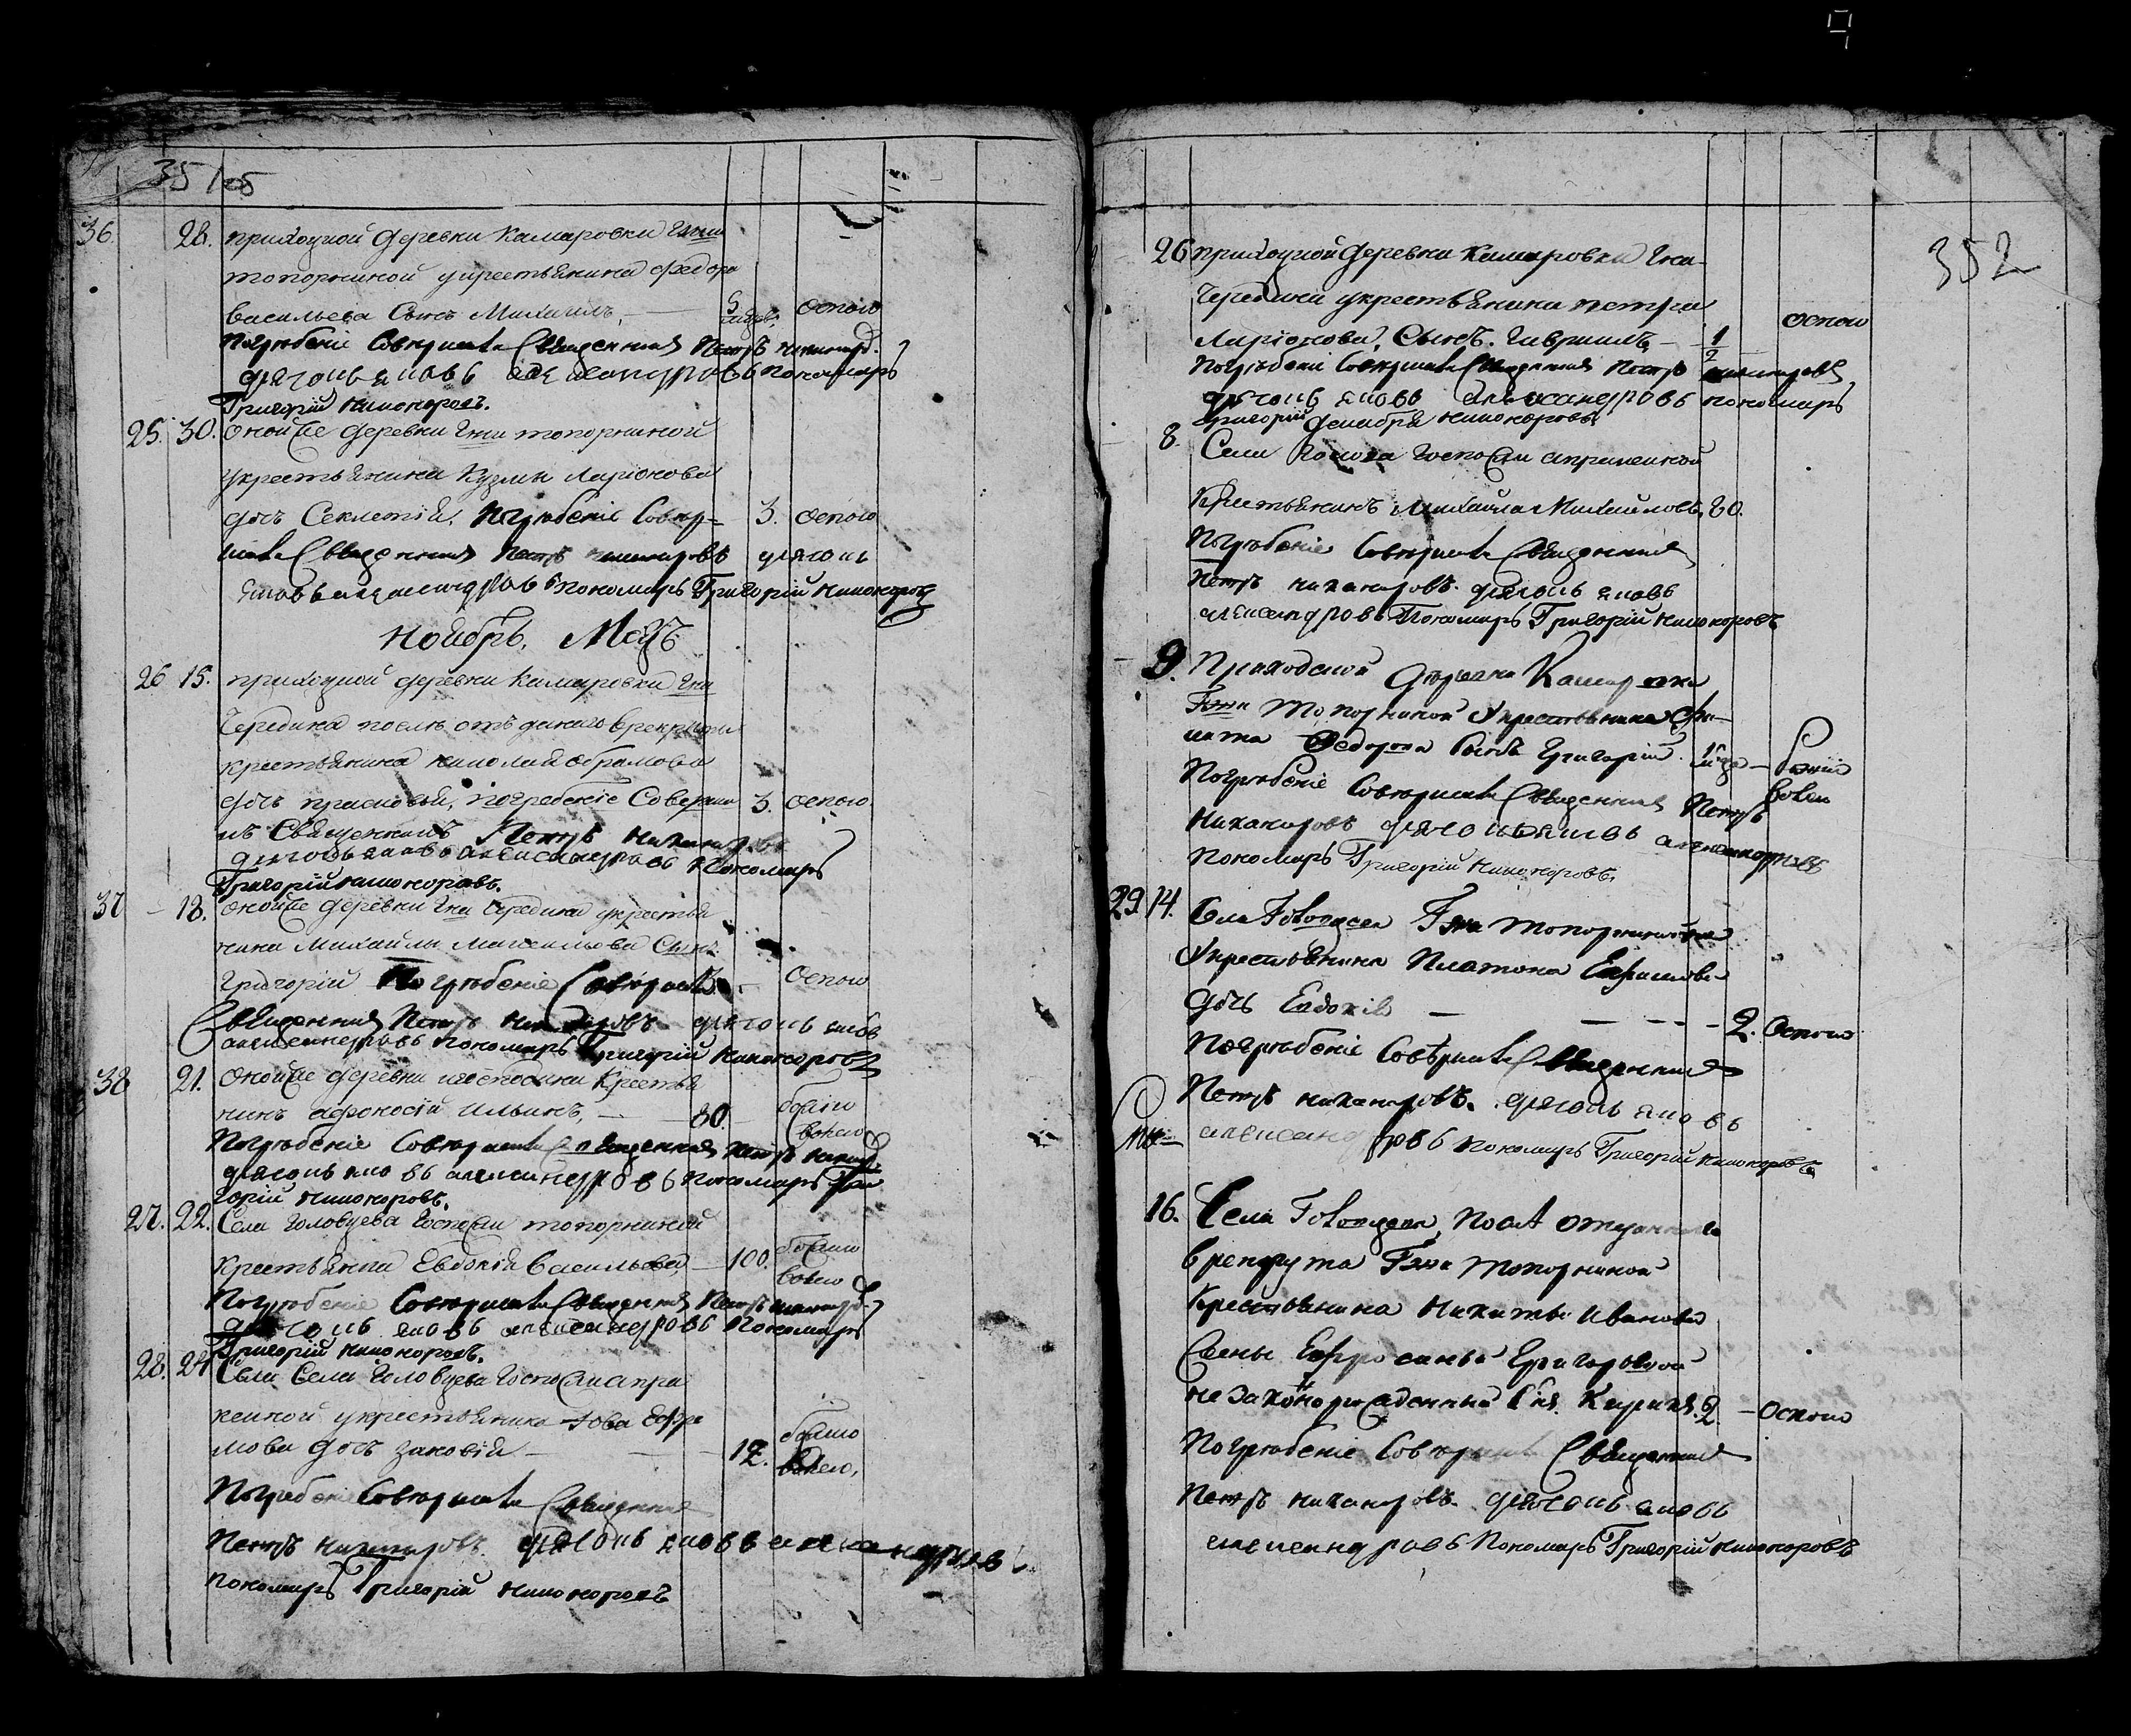 35 105
36. 28. приходчой деревни Камаровки Гжи
топорниной укрестьянина Федора
васильева Сынъ Михаилъ, 5 оспою
Погребеніе Совершалъ Священникъ Петръ Никаноровъ
дьячокъ яковъ александровъ пономарь
Григорій Никоноровъ.
25. 30. оной же деревни Гжи топорниной
укрестьянина Кузмы Ларіонова
дочь Секлетія, Погребеніе Совер= 3. оспою
шалъ Священникъ Петръ Никаноровъ дьячокъ
яковъ александровъ пономарь Григорій Никоноровъ
Ноябрь, Мцъ
26 15. приходчой деревни Камаровки Гжи
Чередина послѣ отъданаго врекруты
крестьянина николая абрамова
дочь прасковья, погребеніе Соверши 3. оспою
лъ Священникъ Петръ Никаноровъ
дьячокъ яковъ александровъ Пономарь
Григорій Никоноровъ.
37 18. оной же деревни Гжи Чередина укрестья
нина Михайлы Сынъ
Григорій Погребеніе Совершалъ оспою
Священникъ Петръ Никаноровъ дьячокъ яковъ
александровъ пономарь Григорій Никоноровъ
38 21. оной же деревни Крестья
нинъ афонасій ильинъ, 80. болію
волею
Погребеніе Совершалъ Священникъ Петръ Никаноровъ
дьячокъ яковъ александровъ пономарь Гри
горій Никоноровъ.
27. 22. Села Головцева Госпожи топорниной
крестьянка Евдокія васильева, 100. божію
волею
Погребеніе Совершалъ Священникъ Петръ Никаноровъ
дьячокъ яковъ александровъ Пономарь
Григорій Никоноровъ.
28. 24 Села Села Головцева Госпожи апра
кеиной укрестьянина Іова Ефре
мова дочь 12. божію
волею,
Погребеніе Совершалъ Священникъ
Петръ Никаноровъ. дьячокъ яковъ александровъ
пономарь Григорій Никоноровъ
352
26 приходчой деревни Камаровки Гжи
Чередина укрестьянина петра оспою
Ларіонова, Сынъ. Гавриилъ, 1/2
Погребеніе Совершалъ Священникъ Петръ Никаноровъ
дьячокъ яковъ александровъ пономарь
Григорій декабря Никоноровъ
8. Села Госпожи апракеиной
Крестьянинъ Михайла Михайловъ, 80.
Погребеніе Совершалъ Священникъ
Петръ Никаноровъ. дьячокъ яковъ
александровъ Пономарь Григорій Никоноровъ
9. Приходской деревни Камаровки
Гжи Топорниной Укрестьянина
Федорова Сынъ Григорій божію
волею
Погребеніе Совершалъ Священникъ Петръ
Никаноровъ дьячокъ яковъ александровъ
пономарь Григорій Никоноровъ.
29 14. Села Головцева Гжи Топорниной
Укрестьянина Платона Ефимова
дочь Евдокія 2. Оспою
Погребеніе Совершалъ Священникъ
Петръ Никаноровъ. дьячокъ яковъ
александровъ пономарь Григорій Никоноровъ
16. Села Головцева, Послѣ отданнаго
в рекрута Гжи Топорниной
Крестьянина Никиты Иванова
жены Ефросиньи Григорьевой
незаконорожденный Снъ. Кирила. 2. Оспою
Погребеніе Совершалъ Священникъ
Петръ Никаноровъ. дьячокъ яковъ
александровъ Пономарь Григорій Никоноровъ